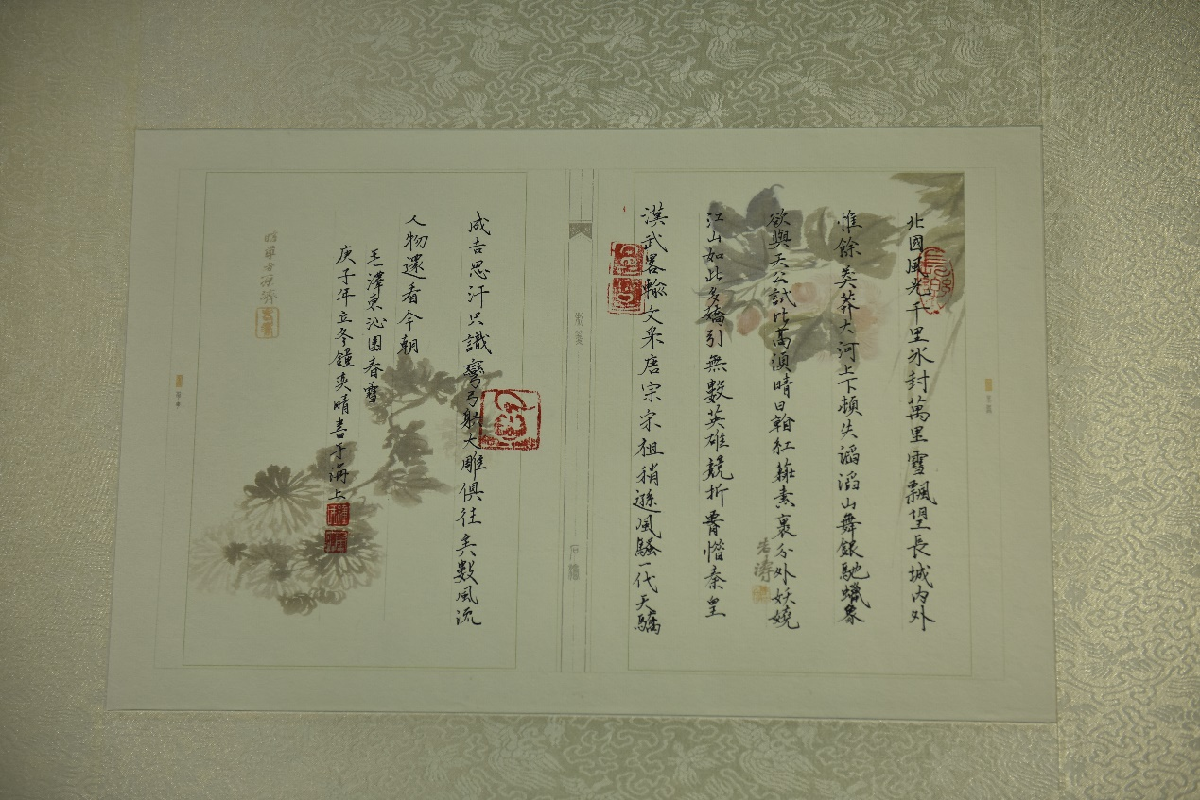 北國風光千里冰封萬里雪飄望長城內外
惟餘莽莽大河上下頓失滔滔山舞銀馳蠟象
欲與天公試比高須晴日看紅裝素裹分外妖嬈
江山如此多嬌引無數英雄競折腰惜秦皇
漢武畧輸文采唐宗宋祖稍遜風騷一代天驕
成吉思汗只識彎弓射大雕俱往矣數風流
人物還看今朝
毛澤東沁園春雪
庚子年立冬鐘奕晴書于海上